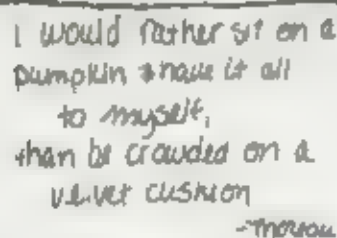 I would rather sit on a
pumpkin & have it all
to myself,
than be crowded on a
velvet cushion
-Thoreau